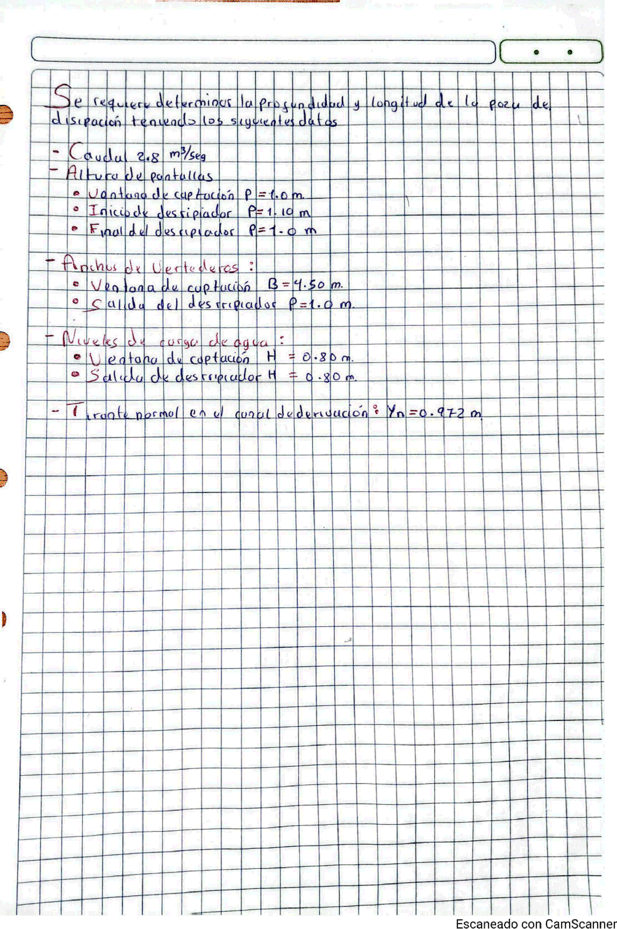 Se requiere determinar la profundidad y longitud de la poza de
disipación teniendo los siguientes datos
- Caudal 2.8 m³/seg
- Altura de pantallas
• Ventana de captación P = 1.0 m.
• Inicio de desripiador P = 1.10 m
• Final del desripiador P = 1.0 m
- Anchos de Vertederos :
• Ventana de captación B = 4.50 m.
• Salida del desrripiador P = 1.0 m.
- Niveles de carga de agua :
• Ventana de captación H = 0.80 m.
• Salida de desrripiador H = 0.80 m.
- Tirante normal en el canal de derivación : Yn = 0.972 m
Escaneado con CamScanner